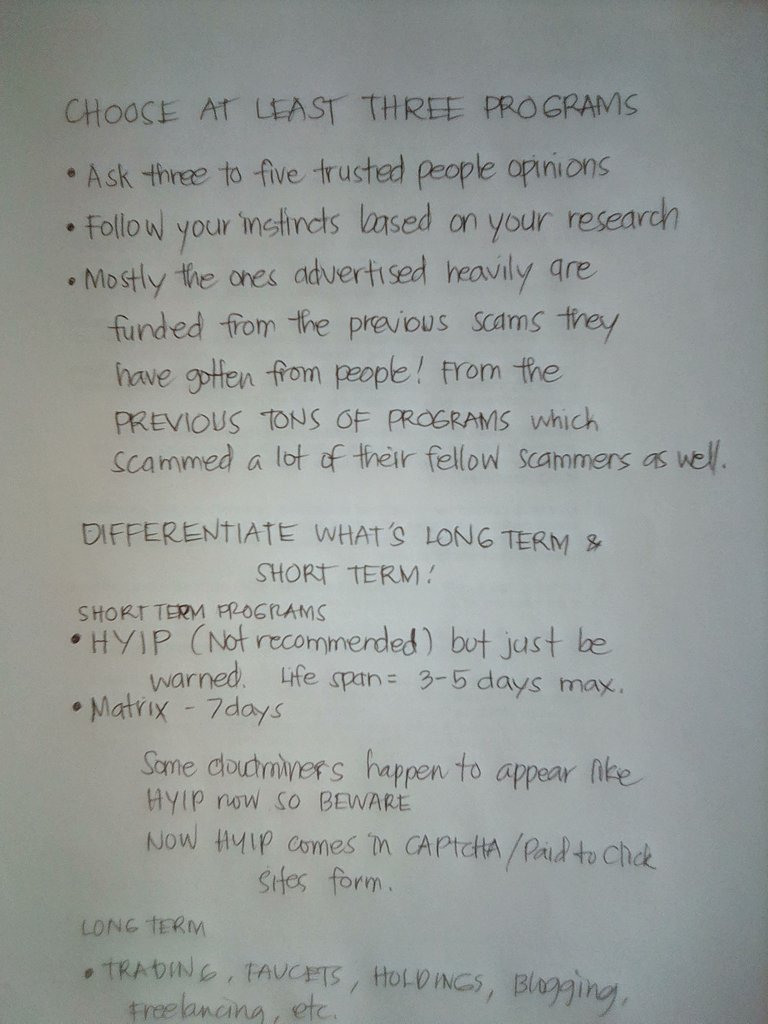 CHOOSE AT LEAST THREE PROGRAMS
• Ask three to five trusted people opinions
• Follow your instincts based on your research
• Mostly the ones advertised heavily are
funded from the previous scams they
have gotten from people! From the
PREVIOUS TONS OF PROGRAMS which
scammed a lot of their fellow scammers as well.
DIFFERENTIATE WHAT'S LONG TERM &
SHORT TERM!
SHORT TERM PROGRAMS
• HYIP (Not recommended) but just be
warned. Life span = 3-5 days max.
• Matrix - 7days
Some cloudminers happen to appear like
HYIP now SO BEWARE
NOW HYIP comes in CAPTCHA/Paid to Click
Sites form.
LONG TERM
• TRADING, FAUCETS, HOLDINGS, Blogging,
Freelancing, etc.